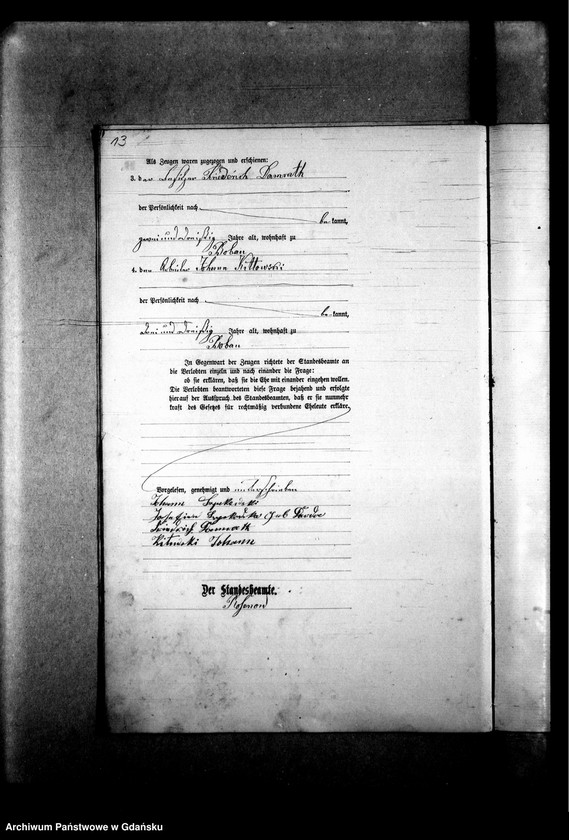 13
Als Zeugen waren zugezogen und erschienen:
3. der Besitzer Friedrich Damrath
der Persönlichkeit nach
bekannt,
zwei und dreißig Jahre alt, wohnhaft zu
4. der Arbeiter Johann Kittowski
der Persönlichkeit nach
bekannt,
drei und dreißig Jahre alt, wohnhaft zu
In Gegenwart der Zeugen richtete der Standesbeamte an
die Verlobten einzeln und nach einander die Frage:
ob sie erklären, daß sie die Ehe mit einander eingehen wollen.
Die Verlobten beantworteten diese Frage bejahend und erfolgte
hierauf der Ausspruch des Standesbeamten, daß er sie nunmehr
kraft des Gesetzes für rechtmäßig verbundene Eheleute erkläre.
Vorgelesen, genehmigt und unterschrieben
Johann
geb
Friedrich Damrath
Johann
Der Standesbeamte.
Archiwum Państwowe w Gdańsku